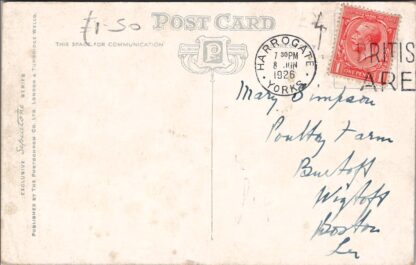 £1-50
POST CARD
THIS SPACE FOR COMMUNICATION
HARROGATE
7 30PM
8 JUN
1926
YORKS.
RITIS
ARE
ONE PENNY
Mary Simpson
Poultry Farm
Burtoft
Wigtoft
Boston
EXCLUSIVE Sepiatone SERIES
PUBLISHED BY THE PHOTOCHROM CO. LTD. LONDON & TUNBRIDGE WELLS.